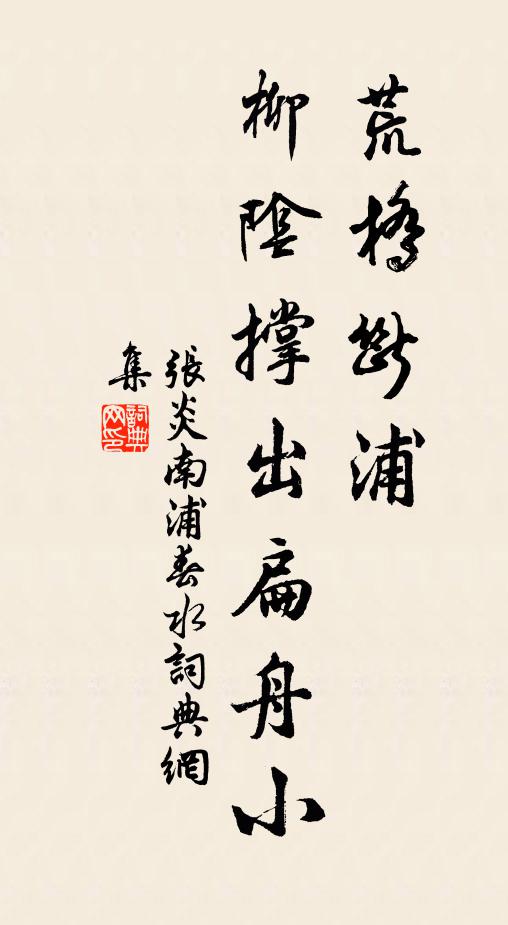 荒橋斷浦
柳陰撐出扁舟小
張炎南浦春水詞典網
集
詞典网印